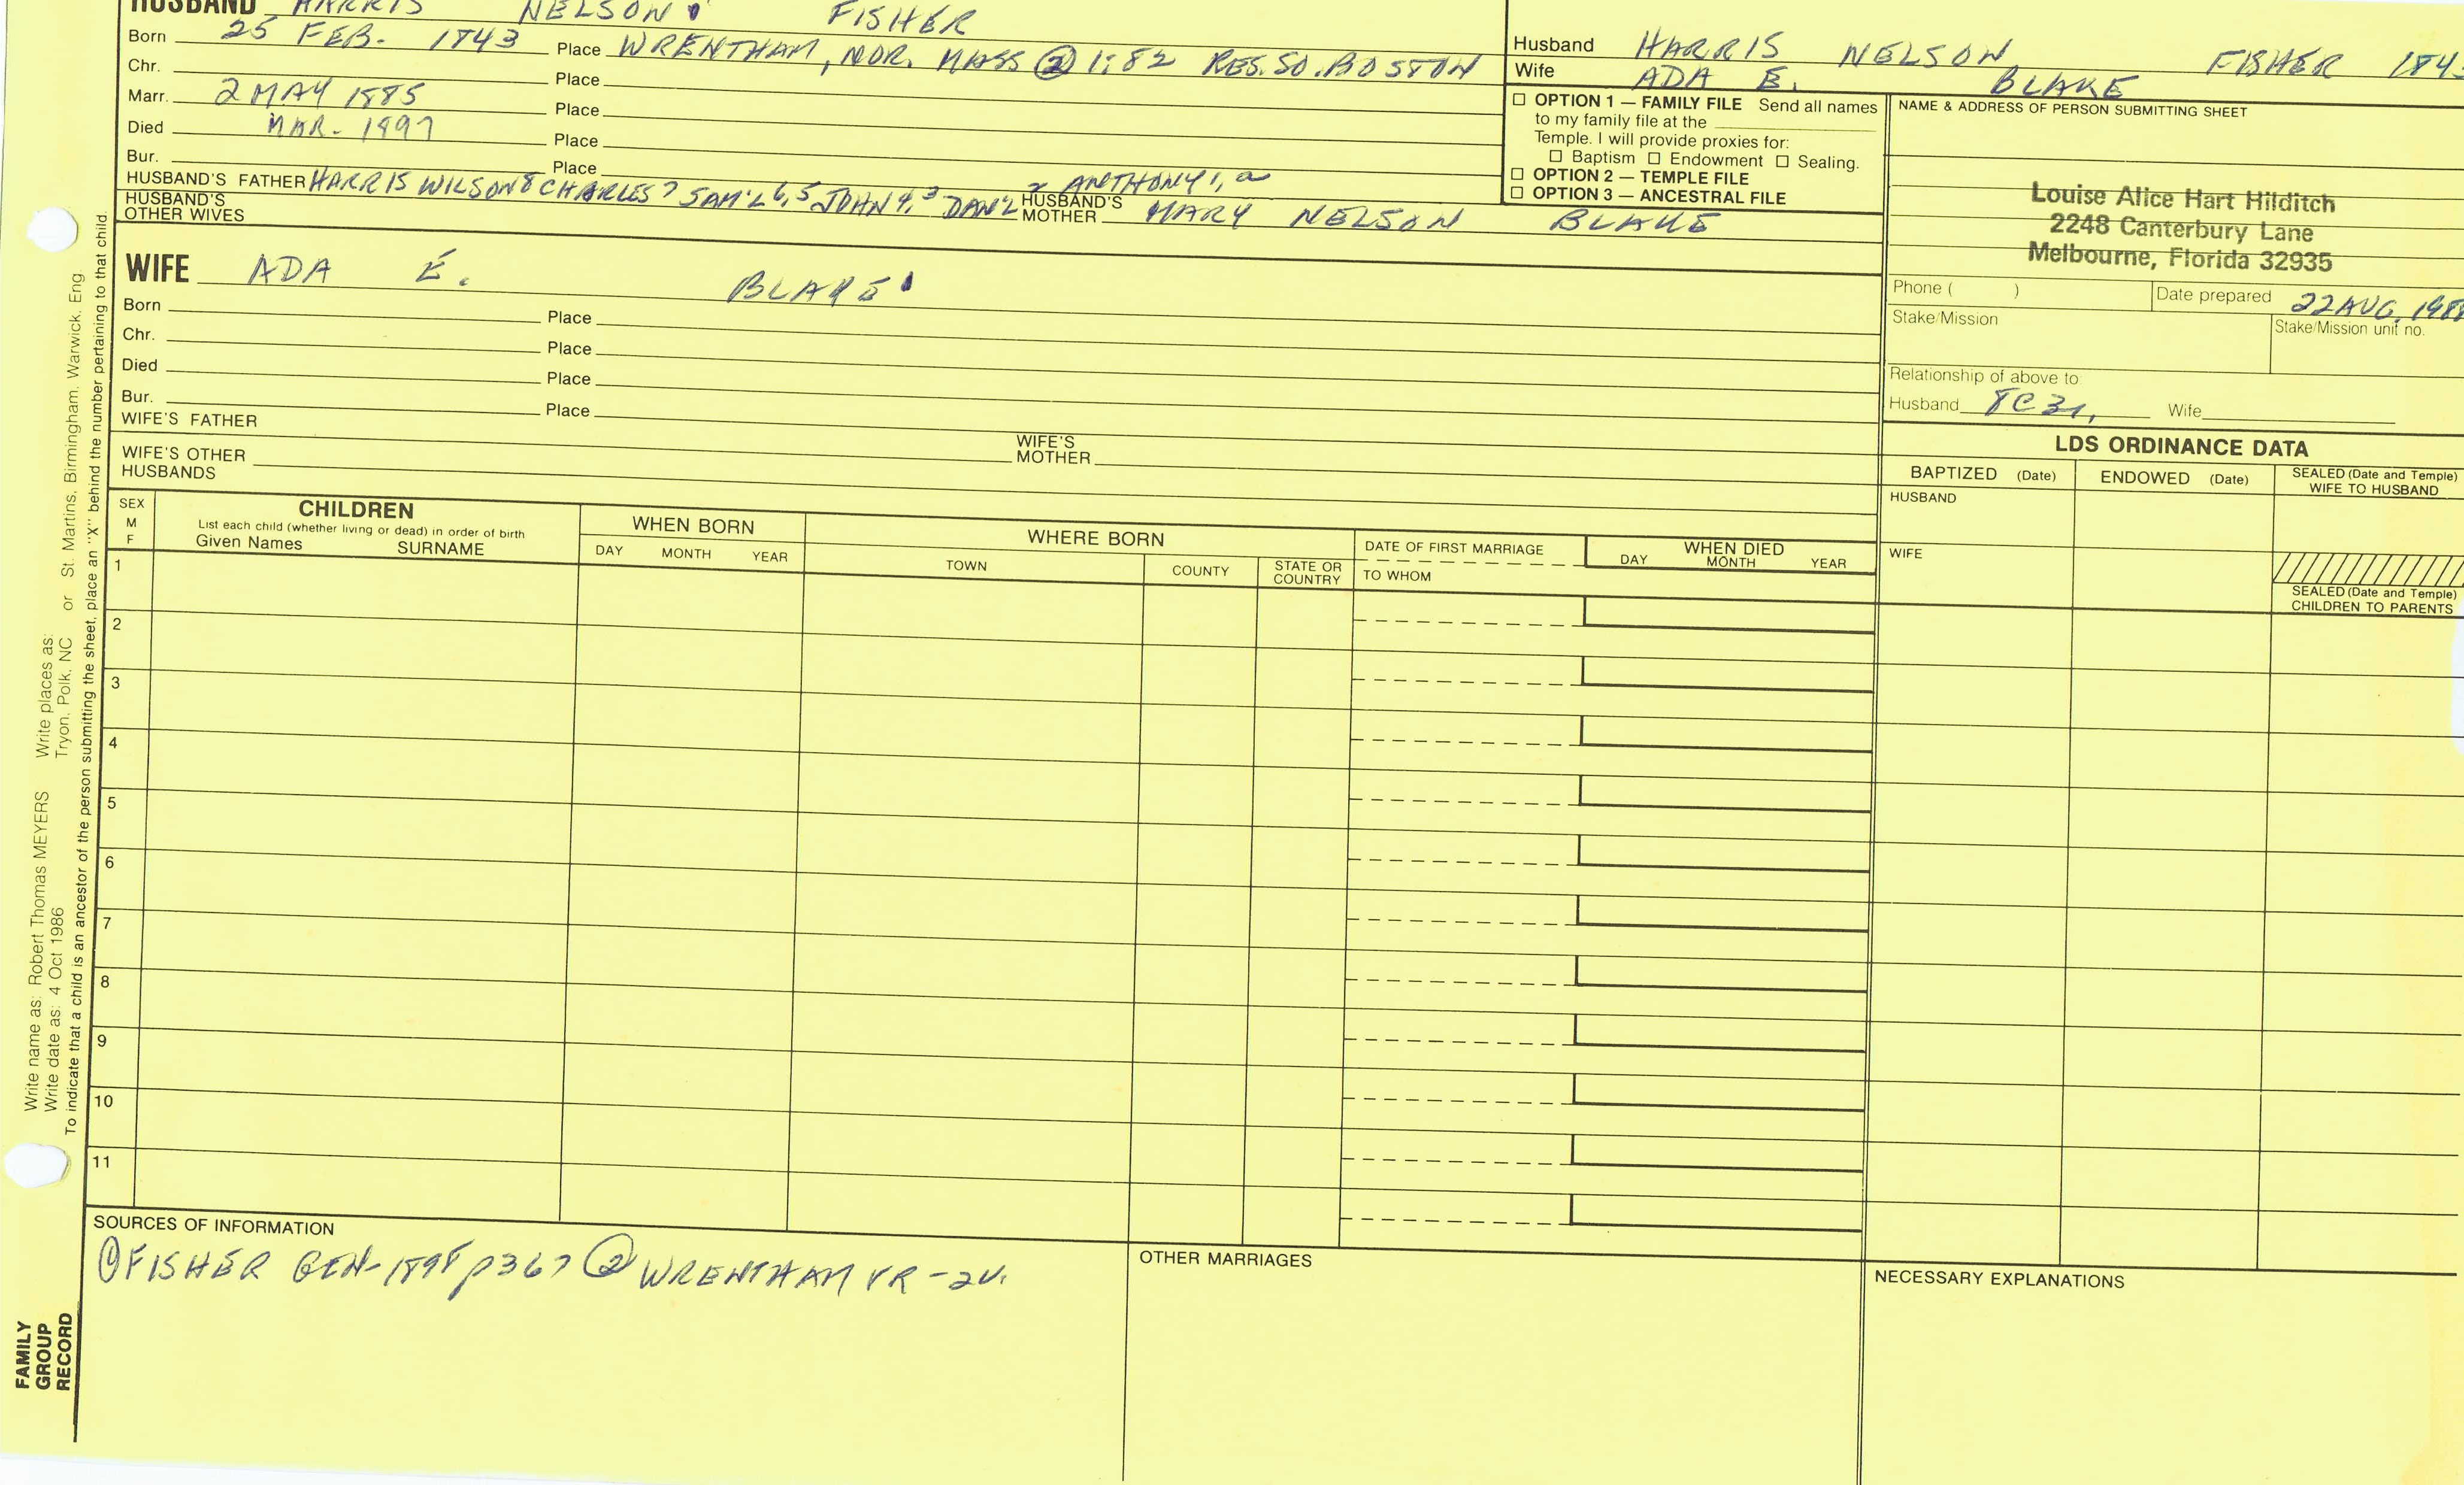 HUSBAND HARRIS NELSON FISHER
Born 25 FEB. 1843 Place WRENTHAM, NOR. MASS ② 1:82 RES. SO. BOSTON
Chr. Place
Marr. 2 MAY 1885 Place
Died MAR. 1897 Place
Bur. Place
HUSBAND'S FATHER HARRIS WILSON 8 CHARLES 7 SAM'L 6, 5 JOHN 4, 3 DAN'L 2 ANTHONY 1, a
HUSBAND'S MOTHER MARY NELSON BLAKE
HUSBAND'S OTHER WIVES
WIFE ADA E. BLAKE
Born Place
Chr. Place
Died Place
Bur. Place
WIFE'S FATHER
WIFE'S MOTHER
WIFE'S OTHER HUSBANDS
Husband HARRIS NELSON FISHER 1843
Wife ADA E. BLAKE
☐ OPTION 1 — FAMILY FILE Send all names
to my family file at the
Temple. I will provide proxies for:
☐ Baptism ☐ Endowment ☐ Sealing.
☐ OPTION 2 — TEMPLE FILE
☐ OPTION 3 — ANCESTRAL FILE
NAME & ADDRESS OF PERSON SUBMITTING SHEET
Louise Alice Hart Hilditch
2248 Canterbury Lane
Melbourne, Florida 32935
Phone ( ) Date prepared 22 AUG.
Stake/Mission Stake/Mission unit no.
Relationship of above to
Husband 8C Wife
LDS ORDINANCE DATA
BAPTIZED (Date) ENDOWED (Date) SEALED (Date and Temple)
WIFE TO HUSBAND
HUSBAND
WIFE
SEALED (Date and Temple)
CHILDREN TO PARENTS
SEX
M
F
CHILDREN
List each child (whether living or dead) in order of birth
Given Names SURNAME
WHEN BORN
DAY MONTH YEAR
WHERE BORN
TOWN COUNTY STATE OR COUNTRY
DATE OF FIRST MARRIAGE
TO WHOM
WHEN DIED
DAY MONTH YEAR
1
2
3
4
5
6
7
8
9
10
11
SOURCES OF INFORMATION
① FISHER GEN-1898 p367 ② WRENTHAM VR-2V.
OTHER MARRIAGES
NECESSARY EXPLANATIONS
Write name as: Robert Thomas MEYERS Write places as:
Write date as: 4 Oct 1986 Tryon, Polk, NC or St. Martins, Birmingham, Warwick, Eng
To indicate that a child is an ancestor of the person submitting the sheet, place an "X" behind the number pertaining to that child.
FAMILY
GROUP
RECORD